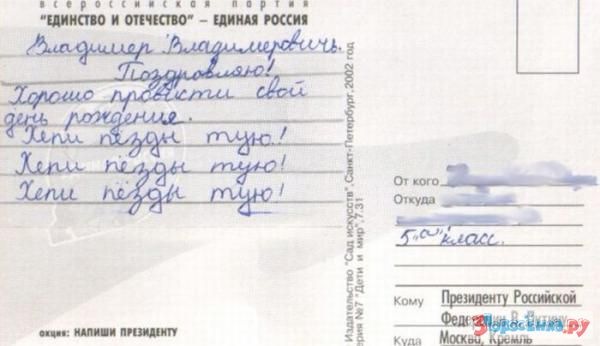 всероссийская партия
"ЕДИНСТВО И ОТЕЧЕСТВО" – ЕДИНАЯ РОССИЯ
Владимер Владимеровичь.
Поздравляю!
Хорошо провисти свой
день рождение.
Хепи пёзды тую!
Хепи пёзды тую!
Хепи пёзды тую!
акция: НАПИШИ ПРЕЗИДЕНТУ
Издательство "Сад искусств", Санкт-Петербург, 2002 год
серия №7 "Дети и мир", 7.31
От кого
Откуда
5 "а" класс.
Кому Президенту Российской
Федерации В. Путину
Куда Москва, Кремль